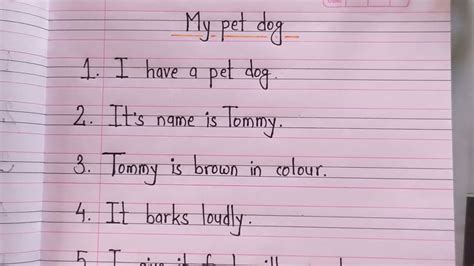 My pet dog
1. I have a pet dog.
2. It's name is Tommy.
3. Tommy is brown in colour.
4. It barks loudly.
5 I give it